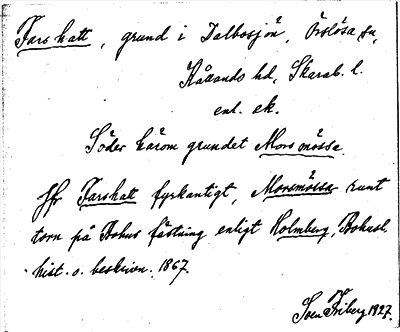 Fars hatt, grund i Dalbosjön, Örslösa sn,
Kållands hd, Skarab. l.
enl. ek.
Söder härom grundet Mors mössa.
Jfr Farshatt fyrkantigt, Morsmössa runt
torn på Bohus fästning enligt Holmberg, Bohusl.
hist. o. beskrivn. 1867.
Sven Friberg 1927.